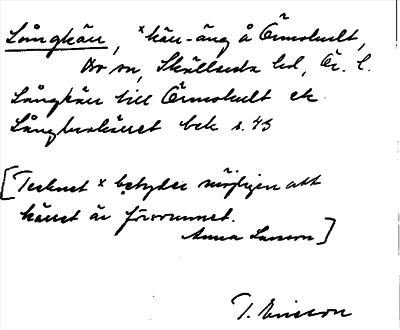 Långkärr, ˣkärr-äng å Örmohult,
Skällerda hd, Ör. l.
Långkärr till Örmohult ek
Långbrokärret bek s. 43
[Tecknet x betyder möjligen att
kärret är försvunnet.
Anna Larsson]
T. Ericsson